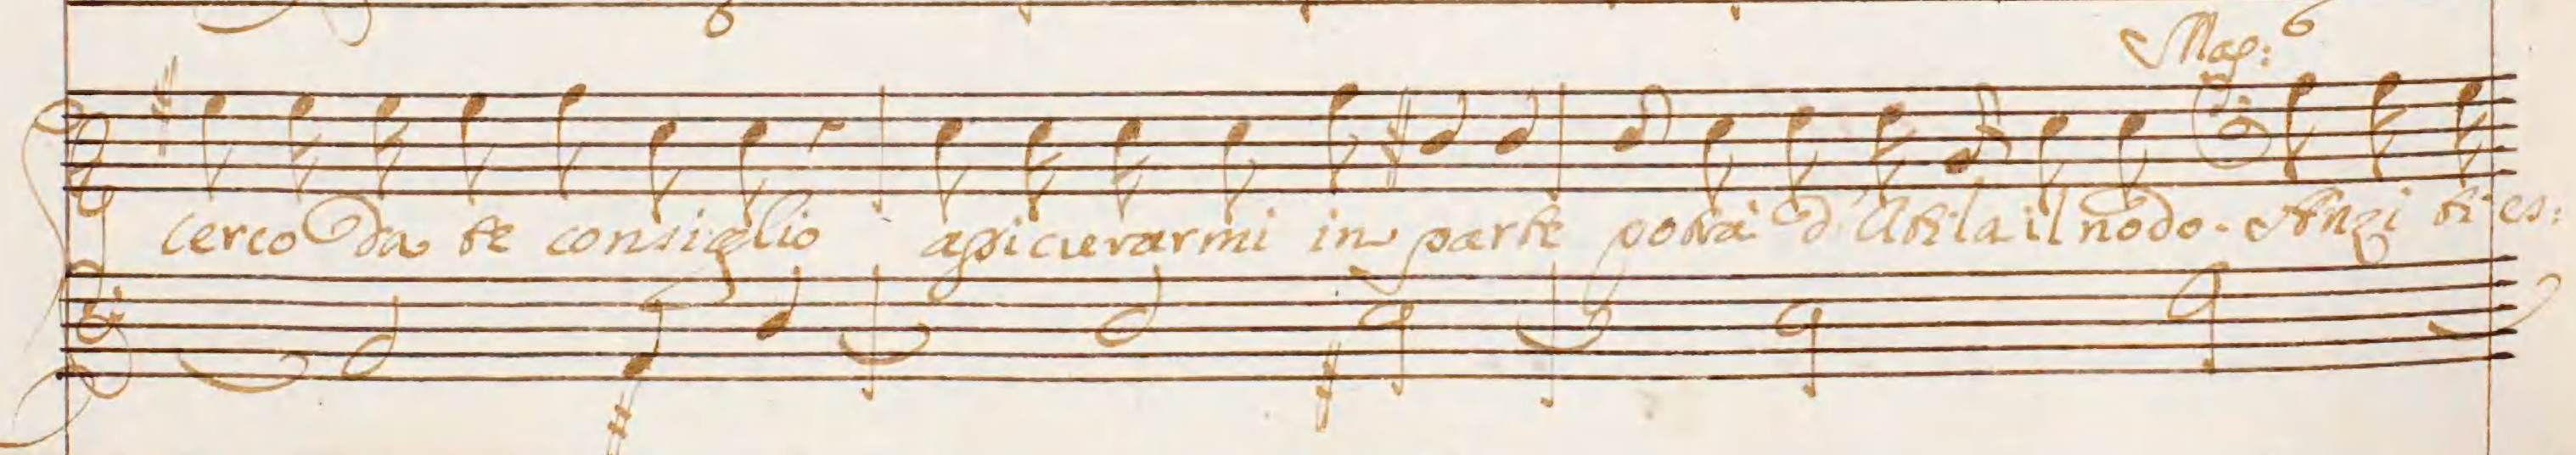 Mas: 6
cerco da te consiglio assicurarmi in parte potrà d'Atila il nodo. Anzi ti es: